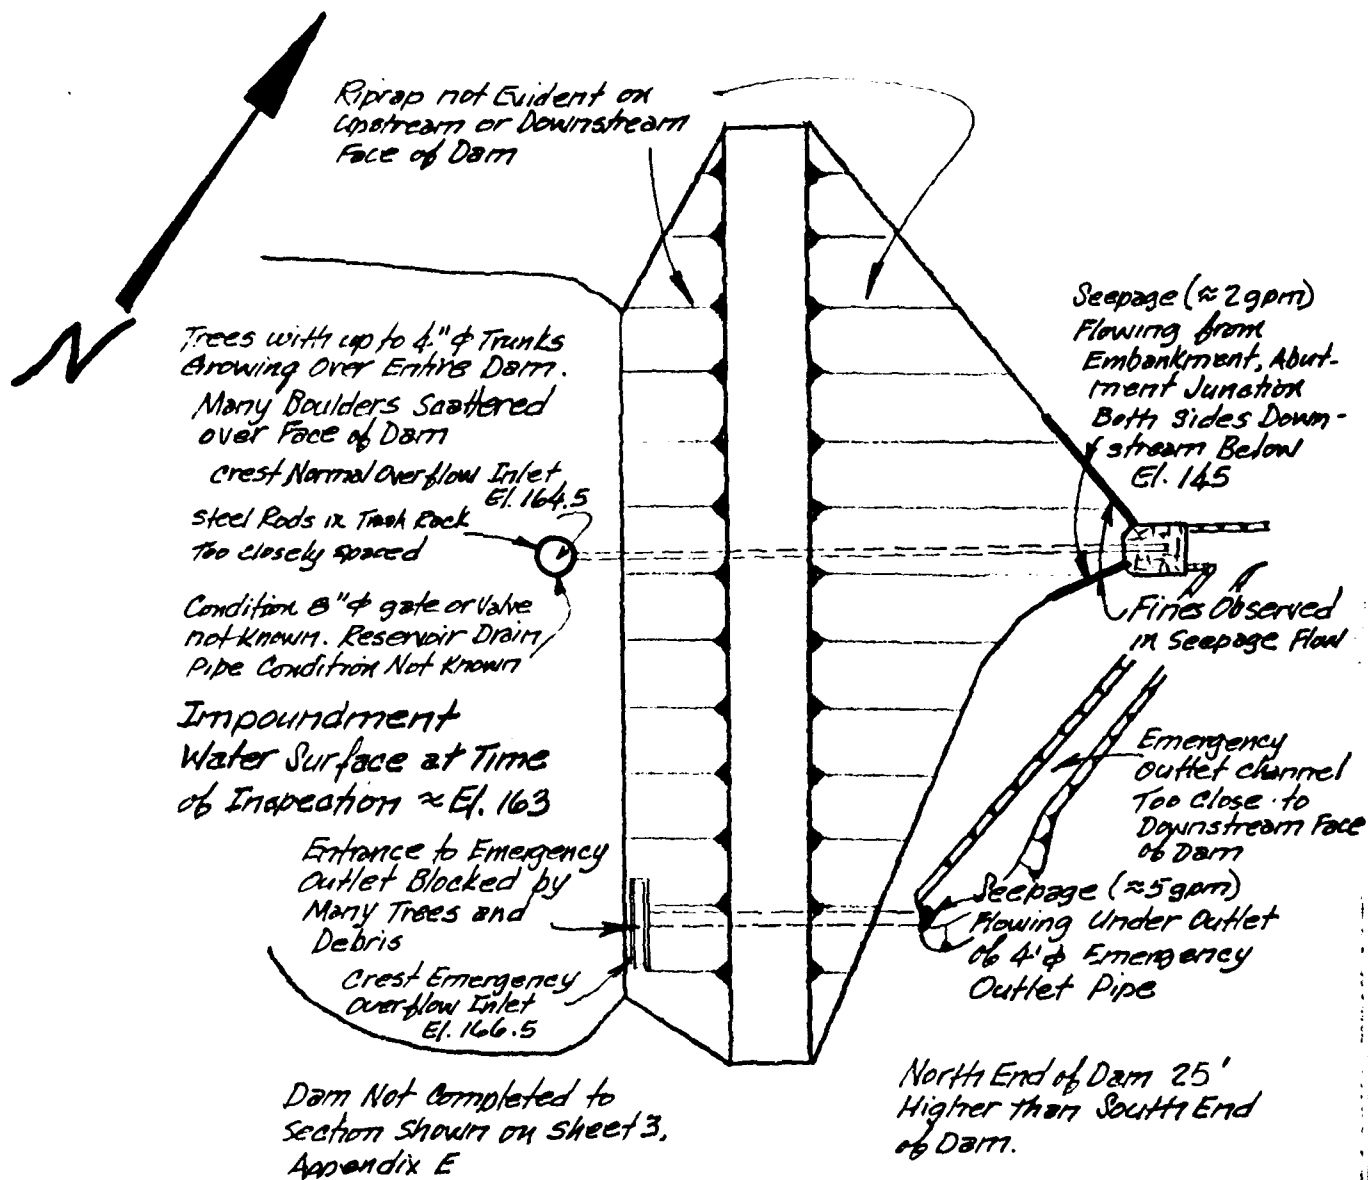 Riprap not Evident on
Upstream or Downstream
Face of Dam
N
Trees with up to 4"φ Trunks
Growing Over Entire Dam.
Many Boulders Scattered
over Face of Dam
Crest Normal Overflow Inlet
El. 164.5
Steel Rods in Trash Rack
Too closely spaced
Condition 8"φ gate or Valve
not Known. Reservoir Drain
Pipe Condition Not Known
Impoundment
Water Surface at Time
of Inspection ≈ El. 163
Entrance to Emergency
Outlet Blocked by
Many Trees and
Debris
Crest Emergency
Overflow Inlet
El. 166.5
Dam Not Completed to
Section Shown on Sheet 3,
Appendix E
Seepage (≈2gpm)
Flowing from
Embankment, Abut-
ment Junction
Both Sides Down-
stream Below
El. 145
Fines Observed
in Seepage Flow
Emergency
Outlet Channel
Too Close to
Downstream Face
of Dam
Seepage (≈5gpm)
Flowing Under Outlet
of 4'φ Emergency
Outlet Pipe
North End of Dam 25'
Higher than South End
of Dam.